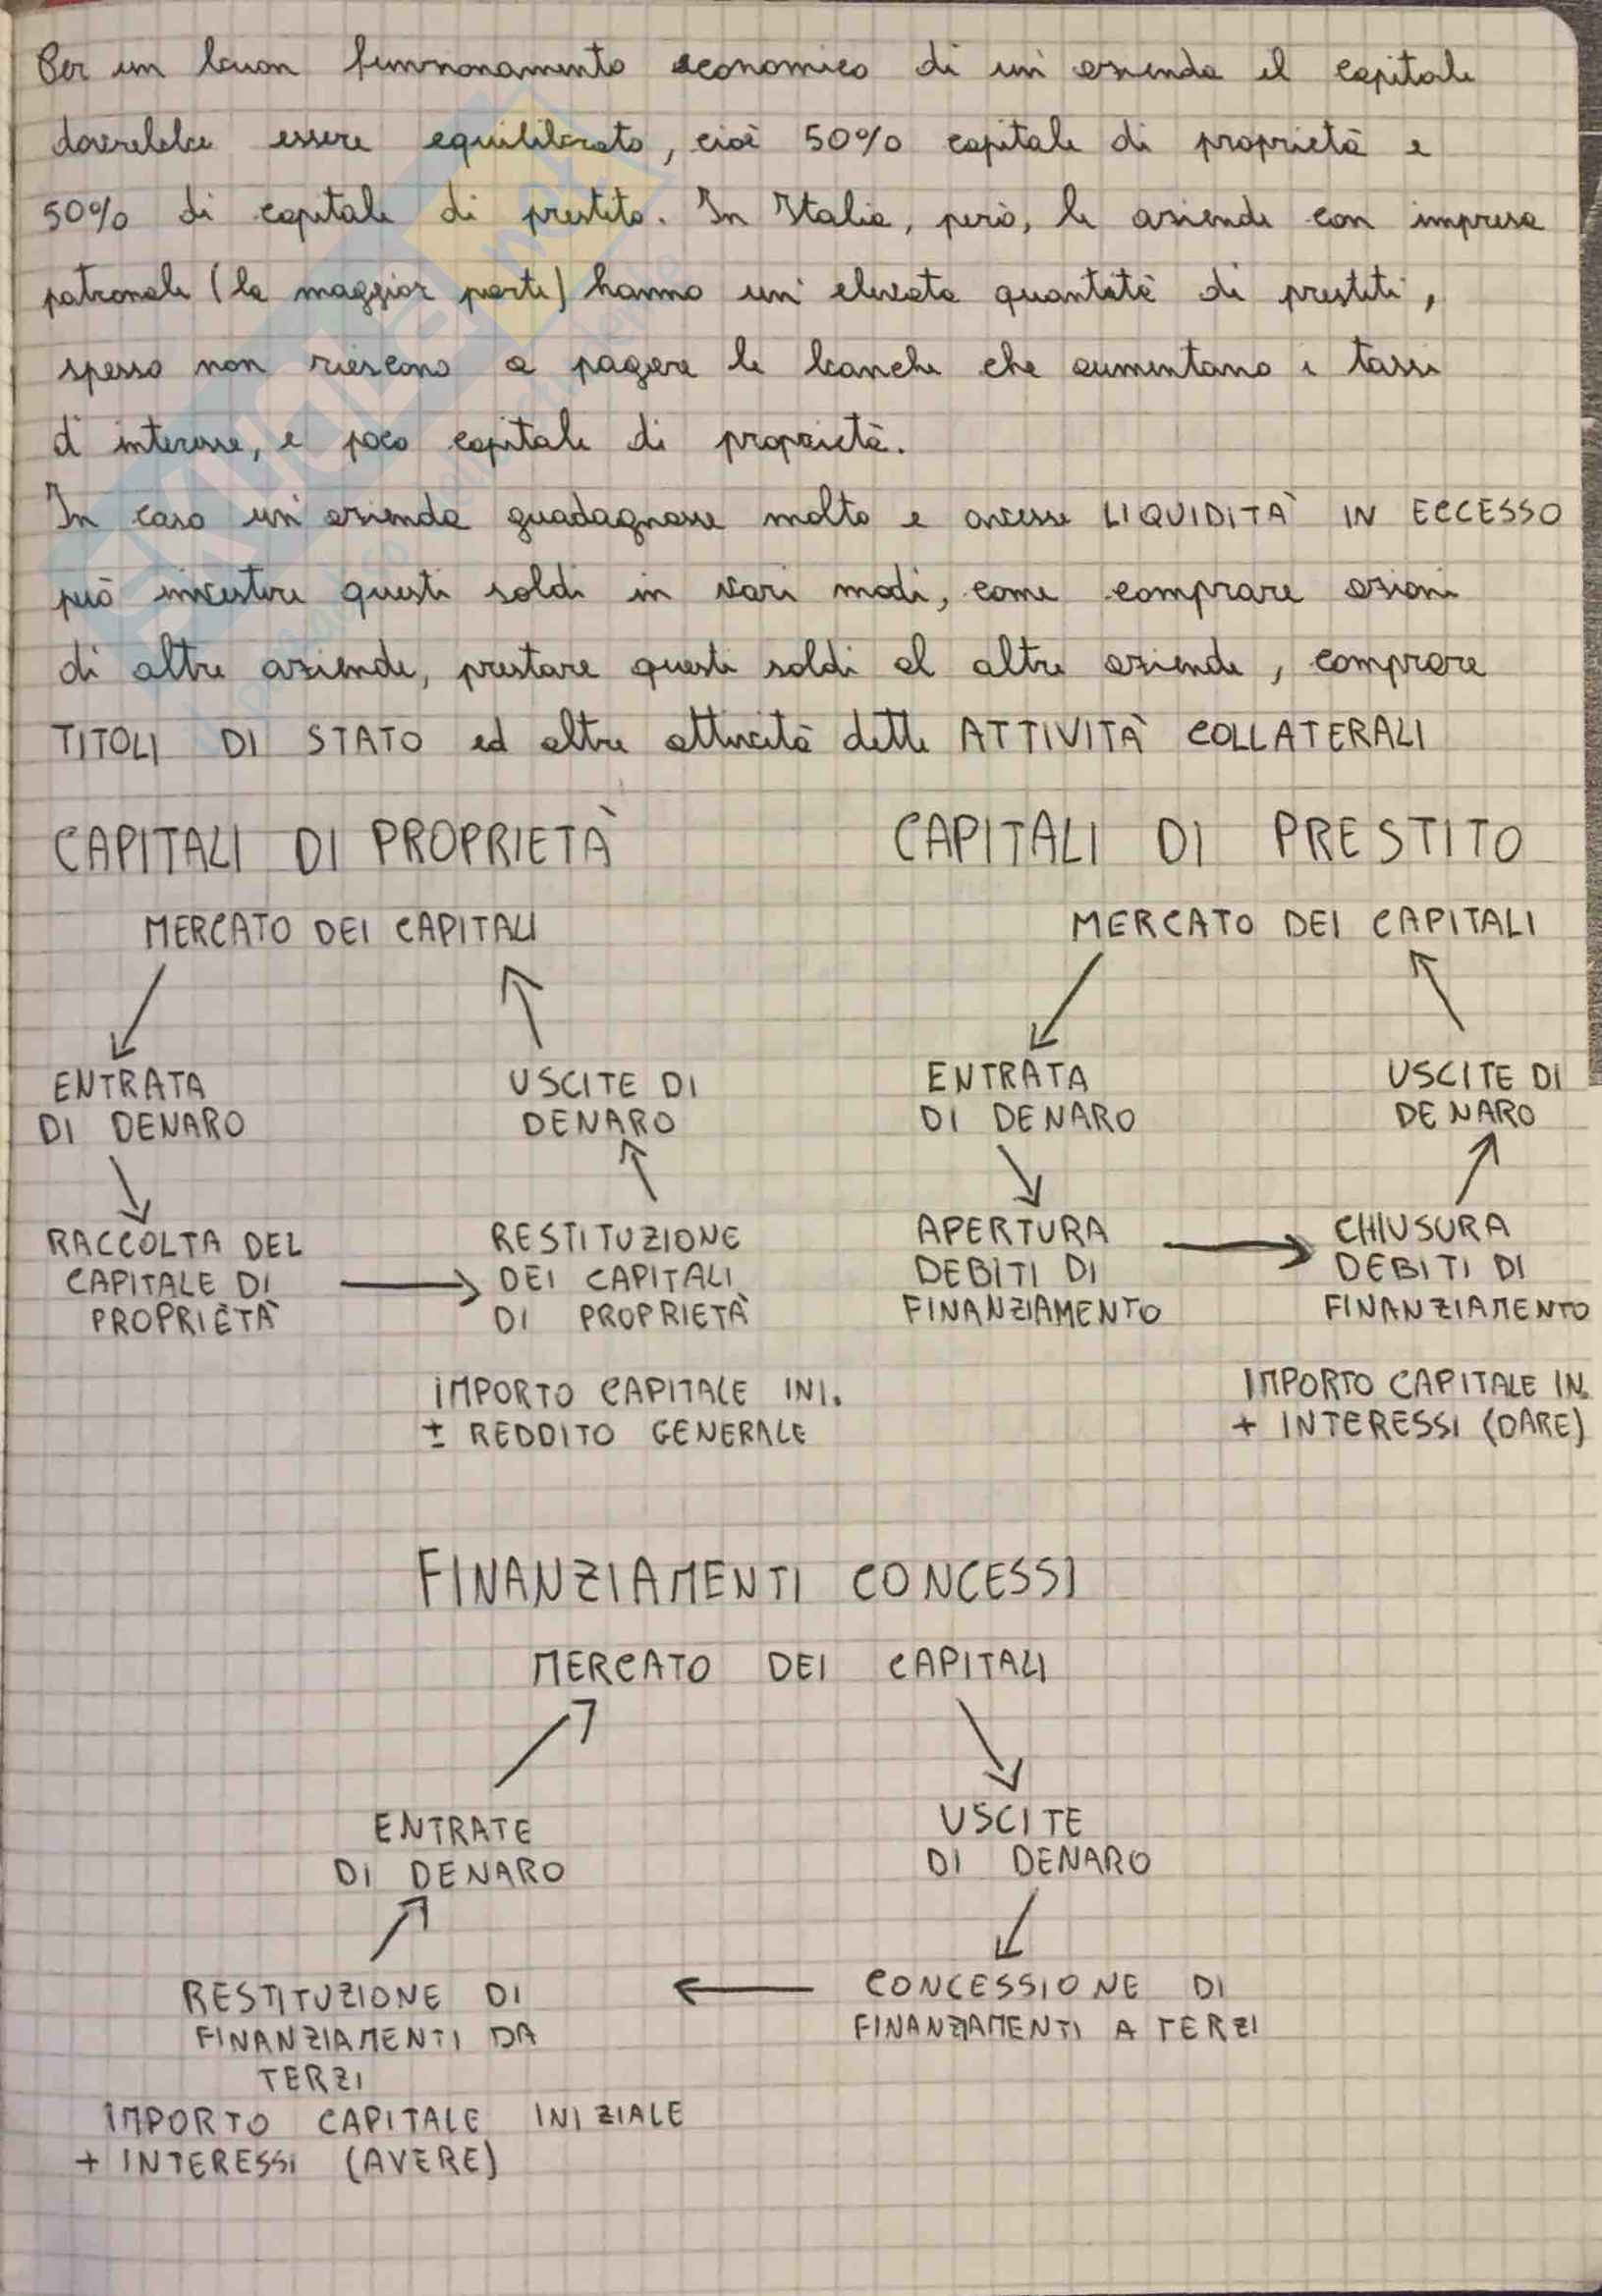 Per un buon funzionamento economico di un'azienda il capitale
dovrebbe essere equilibrato, cioè 50% capitale di proprietà e
50% di capitale di prestito. In Italia, però, le aziende con impresa
patronale (la maggior parte) hanno un'elevata quantità di prestiti,
spesso non riescono a pagare le banche che aumentano i tassi
d'interesse, e poco capitale di proprietà.
In caso un'azienda guadagnasse molto e avesse LIQUIDITÀ IN ECCESSO
può investire questi soldi in vari modi, come comprare azioni
di altre aziende, prestare questi soldi al altre aziende, comprare
TITOLI DI STATO ed altre attività dette ATTIVITÀ COLLATERALI
CAPITALI DI PROPRIETÀ
MERCATO DEI CAPITALI
ENTRATA
DI DENARO
USCITE DI
DENARO
RACCOLTA DEL
CAPITALE DI
PROPRIETÀ
RESTITUZIONE
DEI CAPITALI
DI PROPRIETÀ
IMPORTO CAPITALE INI.
± REDDITO GENERALE
CAPITALI DI PRESTITO
MERCATO DEI CAPITALI
ENTRATA
DI DENARO
USCITE DI
DENARO
APERTURA
DEBITI DI
FINANZIAMENTO
CHIUSURA
DEBITI DI
FINANZIAMENTO
IMPORTO CAPITALE IN.
+ INTERESSI (DARE)
FINANZIAMENTI CONCESSI
MERCATO DEI CAPITALI
ENTRATE
DI DENARO
USCITE
DI DENARO
RESTITUZIONE DI
FINANZIAMENTI DA
TERZI
CONCESSIONE DI
FINANZIAMENTI A TERZI
IMPORTO CAPITALE INIZIALE
+ INTERESSI (AVERE)